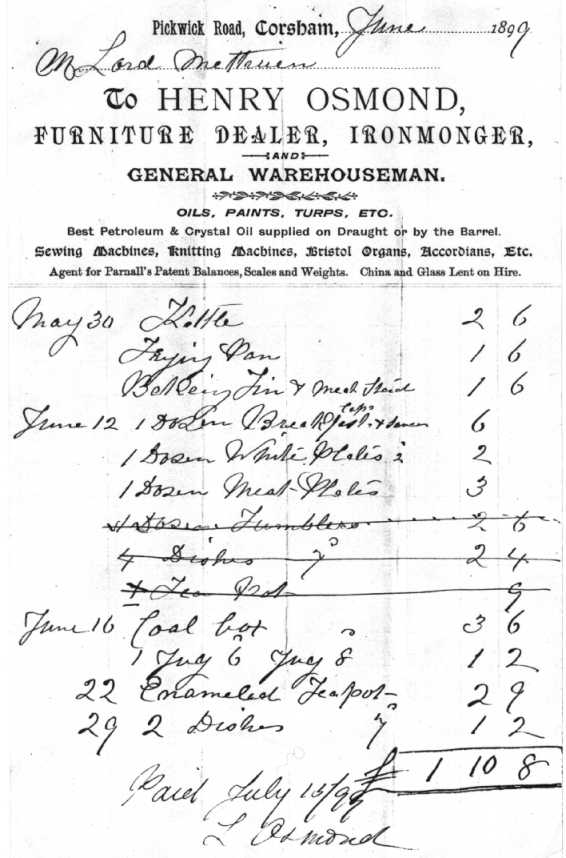 Pickwick Road, Corsham, June 1899
M Lord Methuen
To HENRY OSMOND,
FURNITURE DEALER, IRONMONGER,
AND
GENERAL WAREHOUSEMAN.
OILS, PAINTS, TURPS, ETC.
Best Petroleum & Crystal Oil supplied on Draught or by the Barrel.
Sewing Machines, Knitting Machines, Bristol Organs, Accordians, Etc.
Agent for Parnall's Patent Balances, Scales and Weights. China and Glass Lent on Hire.
May 30 Kettle 2 6
Frying Pan 1 6
Baking Tin & Meat Stand 1 6
June 12 1 Dozen Breakfast Cups & 6
1 Dozen White Plates 2
1 Dozen Meat Plates 3
Dozen Tumblers 2 6
4 Dishes 7 2 4
Tea Pot 9
June 16 Coal box 3 6
1 Jug 6 Jug 8 1 2
22 Enameled Teapot 2 9
29 2 Dishes 7 1 2
£ 1 10 8
Paid July 15/99
L Osmond